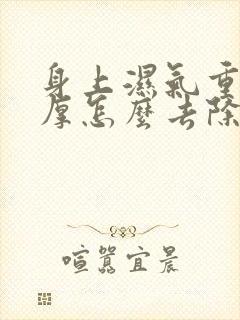 身上濕氣重
厚怎麼去除
喧囂宜晨